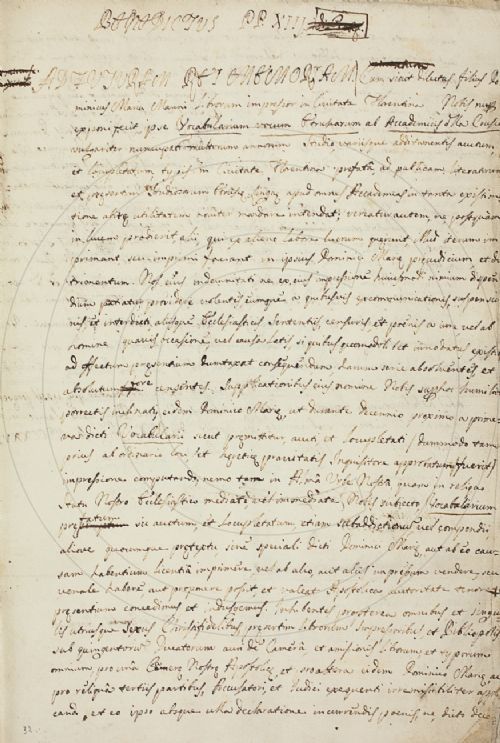 BENEDICTUS PP. XIII
AD FUTURAM REI MEMORIAM Cum sicut dilectus filius Do
minicus Maria Manni librorum impressor in Civitate Florentina Nobis nup
exponi fecit ipse Vocabularium vocum Etruscarum ab Academicis della Crusca
vulgariter nuncupatis multorum annorum studio varijsque additamentis auctum
et completatum typis in Civitate Florentina praefata ad publicam literatorum
et praesertim studiosorum Etruscae linguae apud omnes Accademias in tanta existima
tione alitae utilitatem mandare intendat; vereatur autem, ne postquam
in lucem prodierit alij, qui ex alieno labore lucrum quaerunt illud iterum im
primant, seu imprimi faciant in ipsius Dominici Mariae praejudicium et de
trimentum. Nos eius indemnitati ne ex eius impressione huiusmodi nimium dispen
dium patiatur providere volentes eumque a quibusvis excommunicationis, suspensio
nis et interdicti alijsque Ecclesiasticis sententijs, censuris, et poenis a iure vel ab
homine quavis occasione, vel causa latis si quibus quomodolibet innodatus existit
ad effectum praesentium duntaxat consequendum harum serie absolventes, et
absolutum fore censentes, supplicationibus eius nomine Nobis super hoc humiliter
porrectis inclinati, eidem Dominico Mariae, ut durante decennio proximo a prima
dicti Vocabularij sicut praemittitur, aucti et locupletati dummodo tam
prius ab ordinario loci et haereticae pravitatis Inquisitore approbatum fuerit
impressione computando, nemo tam in Alma Urbe Nostra quam in reliquo
statu Nostro Ecclesiastico mediate vel immediate Nobis subjecto Vocabularium
praefatum sic auctum et locupletatum etiam sub additionis vel compendij
aliove quocumque praetextu sine speciali dicti Dominici Mariae aut ab eo cau
sam habentium licentia imprimere vel ab alio aut alijs impressum vendere, seu
venale habere aut proponere possit et valeat Apostolica auctoritate tenore
praesentium concedimus et indulgemus. Inhibentes propterea omnibus et singu
lis utriusque sexus Christifidelibus, praesertim librorum Impressoribus et Bibliopolis
sub quingentorum Ducatorum auri de Camera et amissionis librorum, et typorum
omnium pro una Camerae Nostrae Apostolicae et pro altera eidem Dominico Mariae ac
pro reliqua tertijs partibus, Accusatori, et Judici exequenti irremissibiliter appli
canda, et eo ipso absque ulla declaratione incurrendis poenis, ne dicto dece
32.